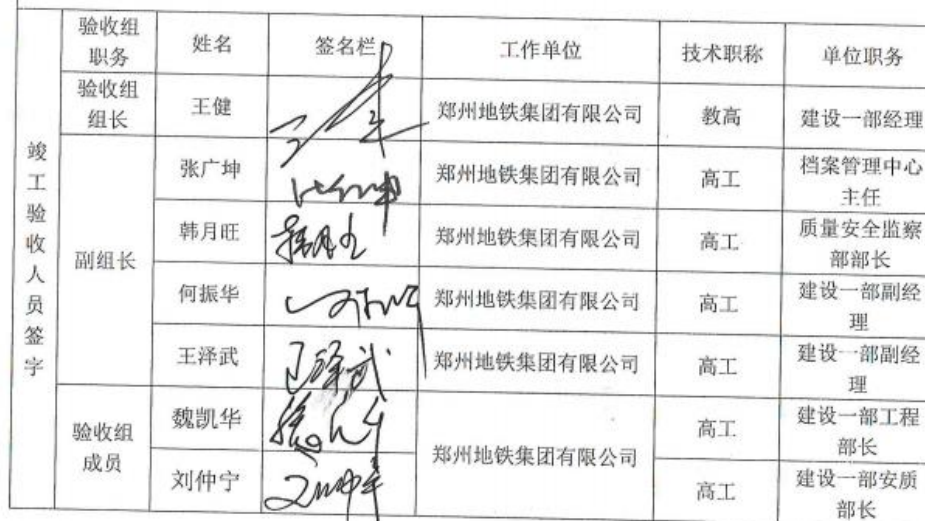 验收组
职务
姓名
签名栏
工作单位
技术职称
单位职务
竣工验收人员签字
验收组
组长
王健
郑州地铁集团有限公司
教高
建设一部经理
副组长
张广坤
郑州地铁集团有限公司
高工
档案管理中心
主任
韩月旺
郑州地铁集团有限公司
高工
质量安全监察
部部长
何振华
郑州地铁集团有限公司
高工
建设一部副经
理
王泽武
王泽武
郑州地铁集团有限公司
高工
建设一部副经
理
验收组
成员
魏凯华
郑州地铁集团有限公司
高工
建设一部工程
部长
刘仲宁
高工
建设一部安质
部长